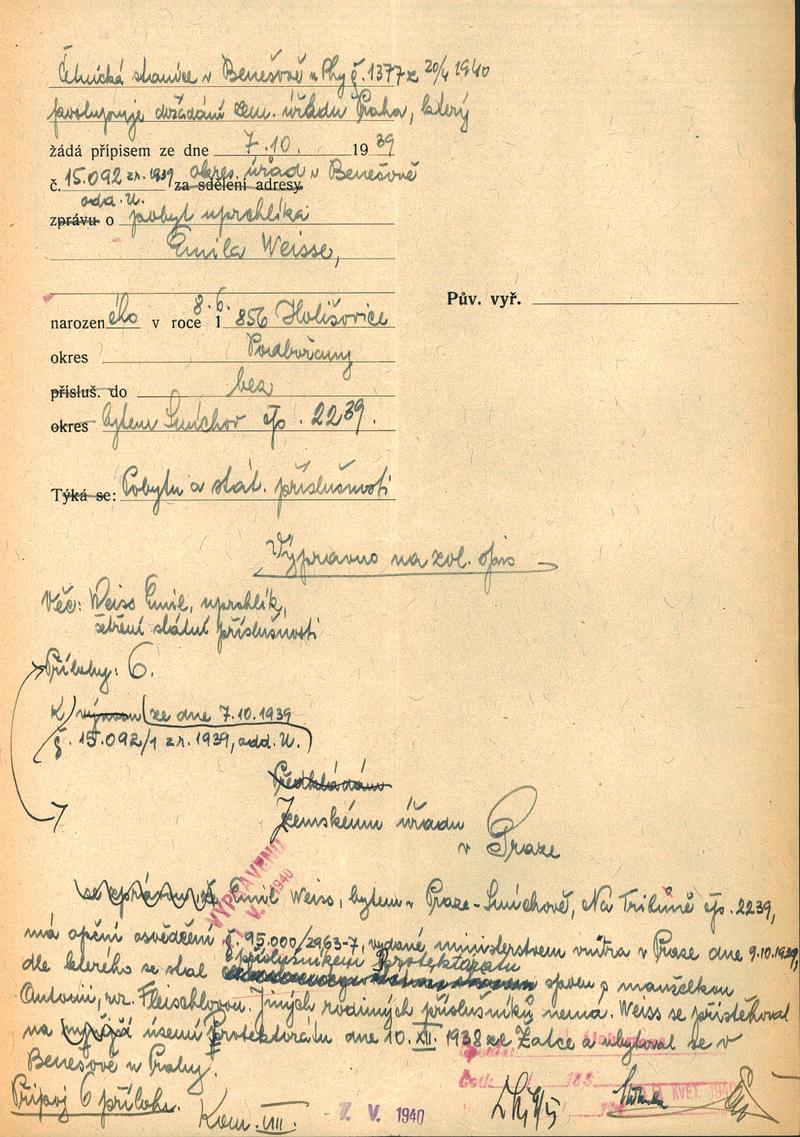 Četnická stanice v Benešově u Phy č. 1377 z 20/4 1940
postupuje dožádání zem. úřadu Praha, který
žádá přípisem ze dne 7.10. 1939
č. 15.092 z r. 1939 okres. úřad v Benešově
odd. U. za sdělení adresy
zprávu o pobyt uprchlíka
Emila Weisse,
Pův. vyř.
narozeného v roce 8.6. 1 856 Holišovice
okres Podbořany
přísluš. do bez
okres bytem Smíchov čp. 2239.
Týká se: Pobytu a stát. příslušnosti
Výpravno na zvl. opis
Věc: Weiss Emil, uprchlík,
šetření státní příslušnosti
Přílohy: 6.
K výnosu ze dne 7.10.1939
č. 15.092/1 z r. 1939, odd. U.
Předkládám
Zemskému úřadu
v Praze
VYPRAVENO
V. 1940
Emil Weiss, bytem v Praze-Smíchově, Na Tribuně čp. 2239,
má opční osvědčení č. 95.000/2963-7, vydané ministerstvem vnitra v Praze dne 9.10.1939,
dle kterého se stal příslušníkem Protektorátu spolu s manželkou
Antonií, roz. Fleischlovou. Jiných rodinných příslušníků nemá. Weiss se přistěhoval
na území Protektorátu dne 10. XII. 1938 ze Žatce a ubytoval se v
Benešově u Prahy.
Připoj 6 příloh.
Kom. VIII.
7. V. 1940
KVĚT. 1940